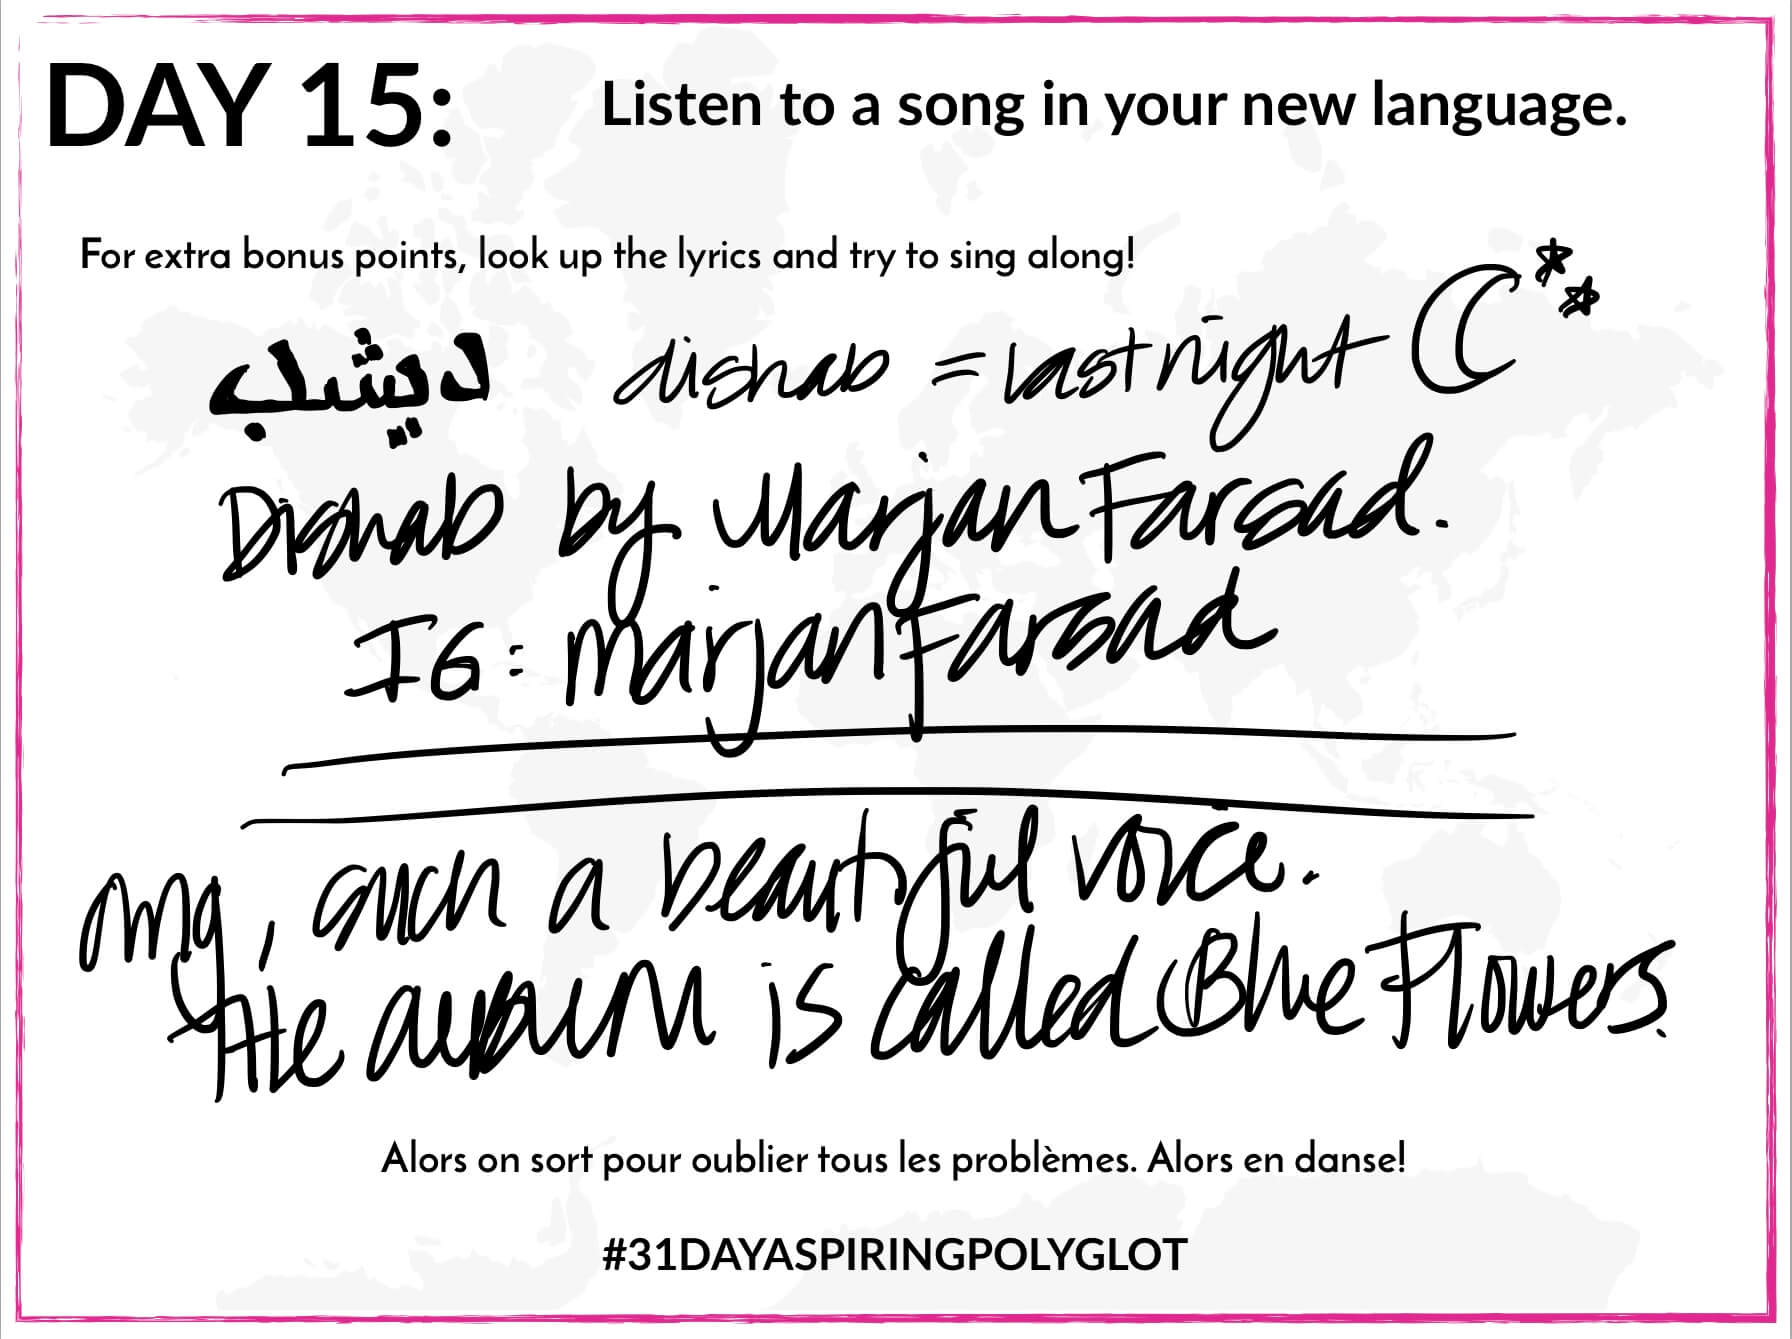 DAY 15: Listen to a song in your new language.
For extra bonus points, look up the lyrics and try to sing along!
دیشب dishab = last night
Dishab by Marjan Farsad.
IG: marjanfarsad
omg, such a beautiful voice.
The album is called Blue Flowers.
Alors on sort pour oublier tous les problèmes. Alors en danse!
#31DAYASPIRINGPOLYGLOT